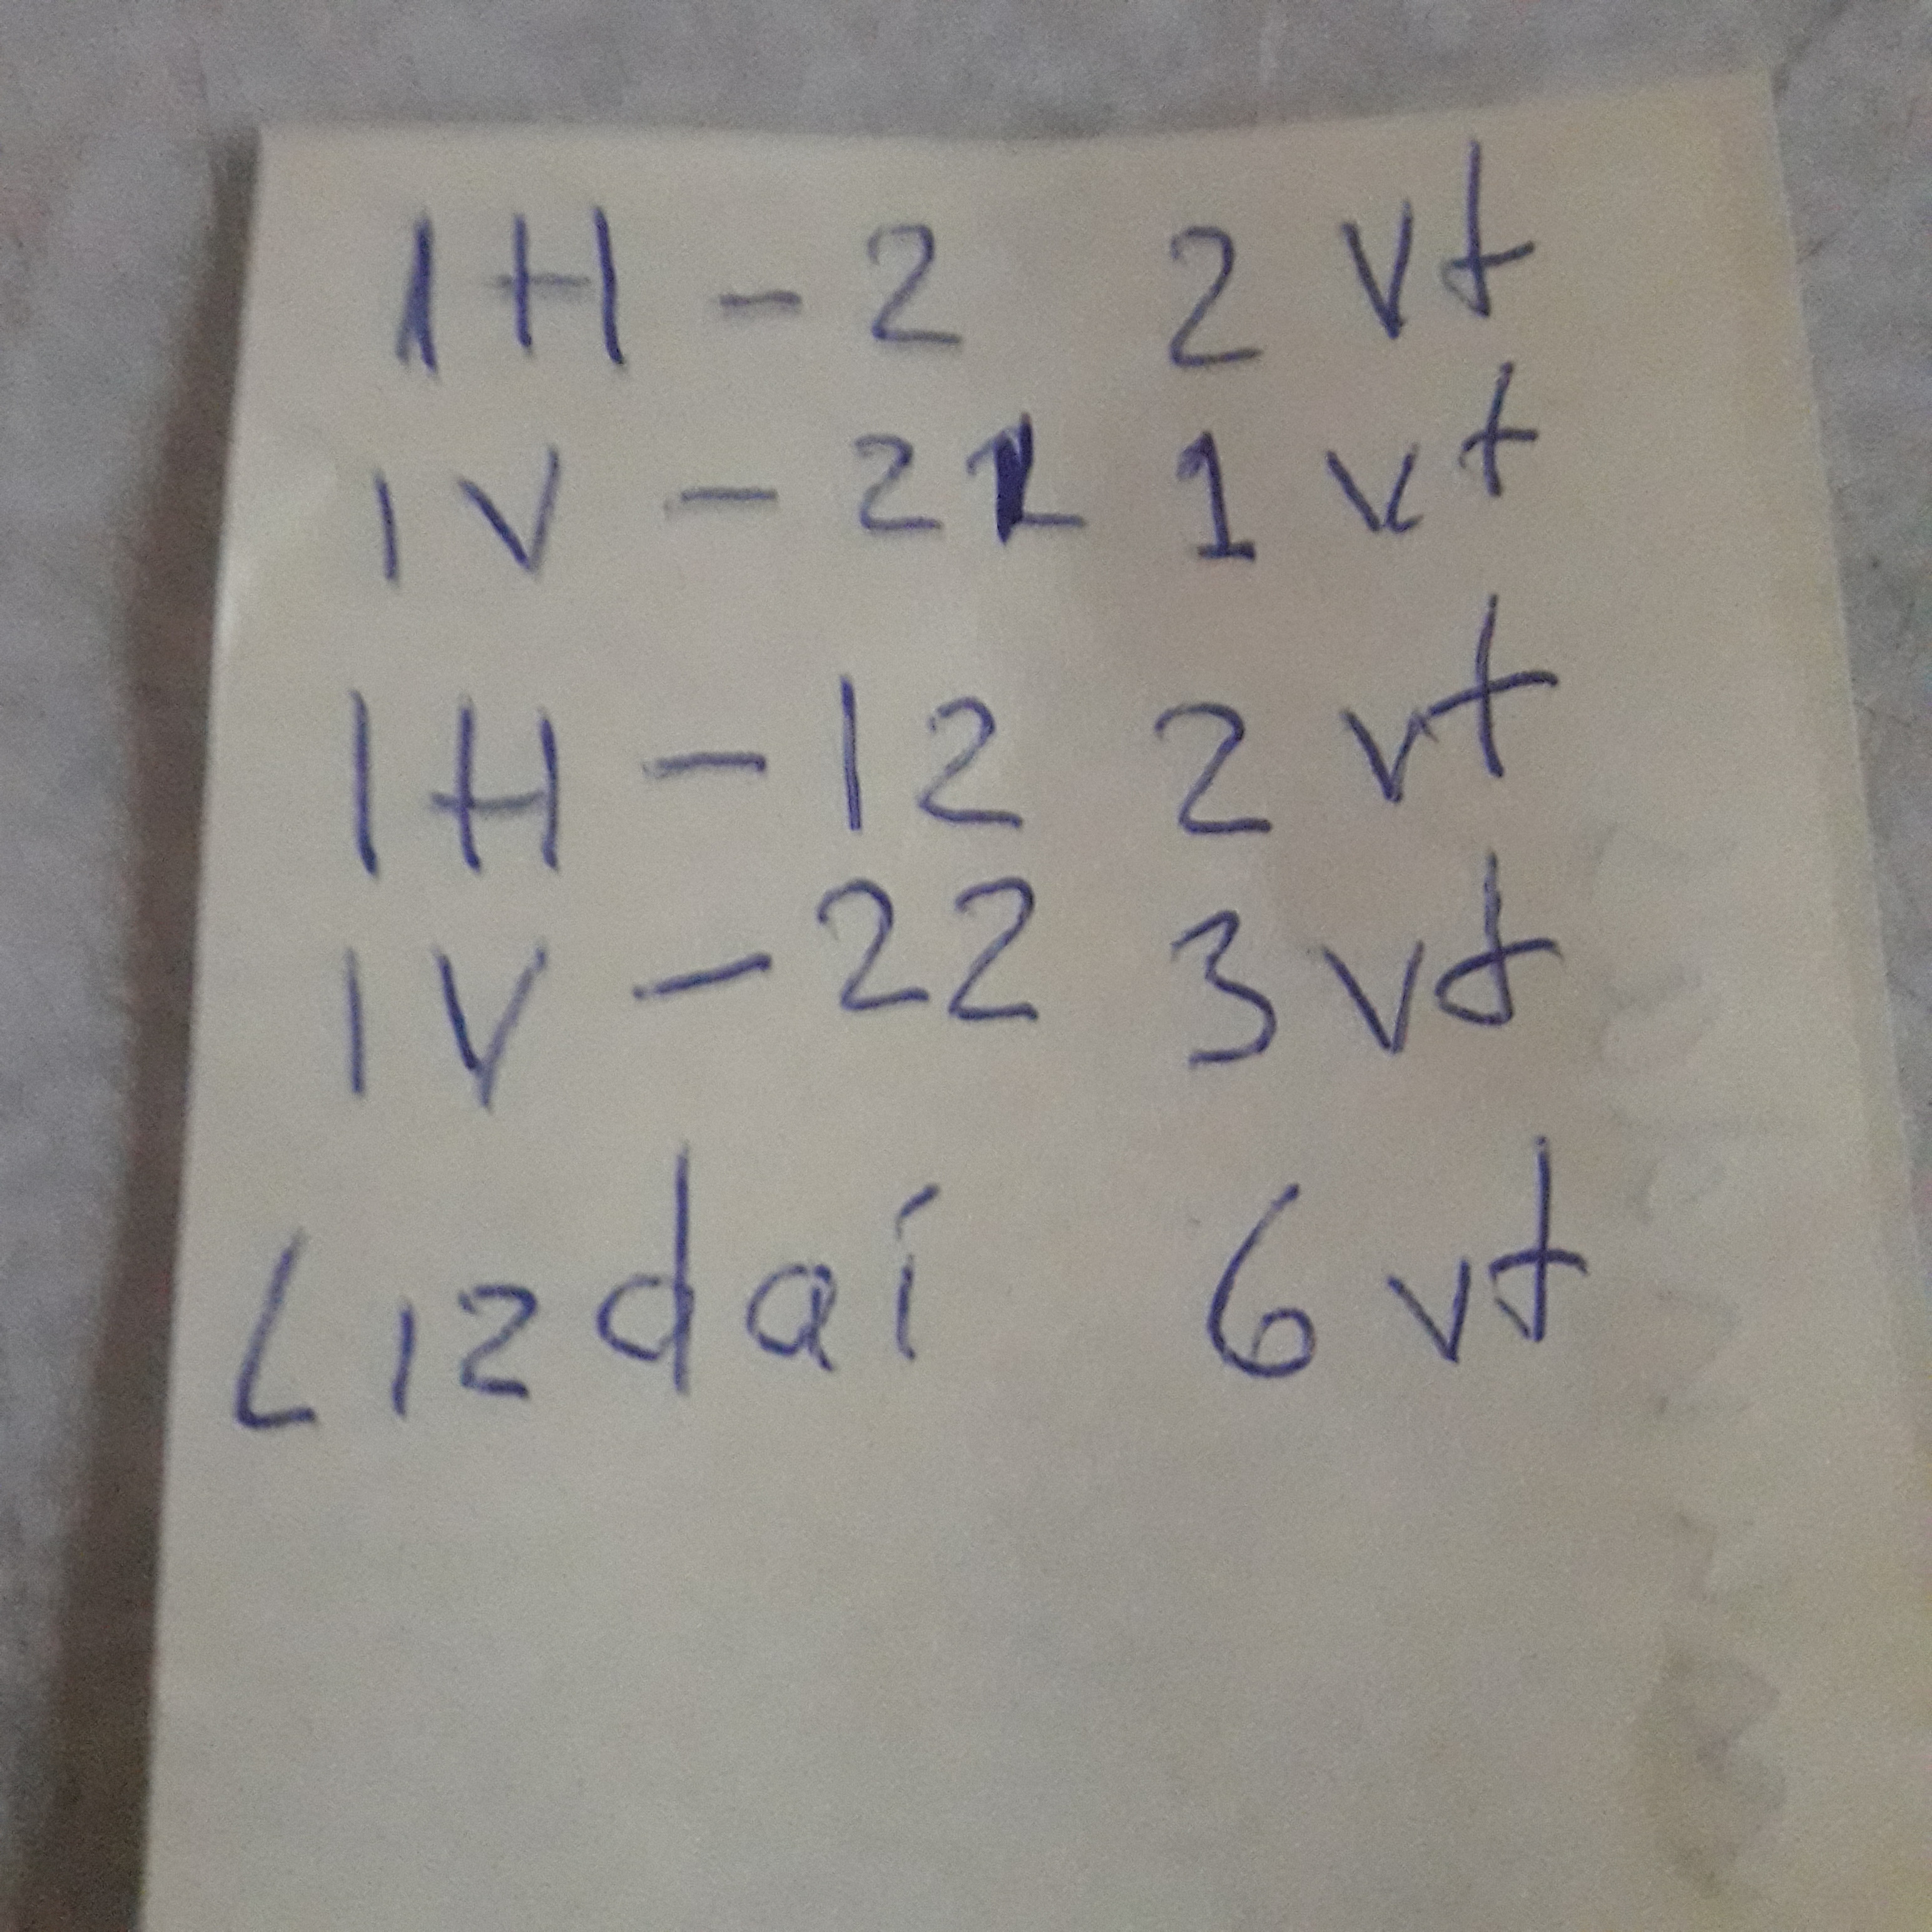 1H - 2 2 vt
1V - 21 1 vt
1H - 12 2 vt
1V - 22 3 vt
Lizdai 6 vt